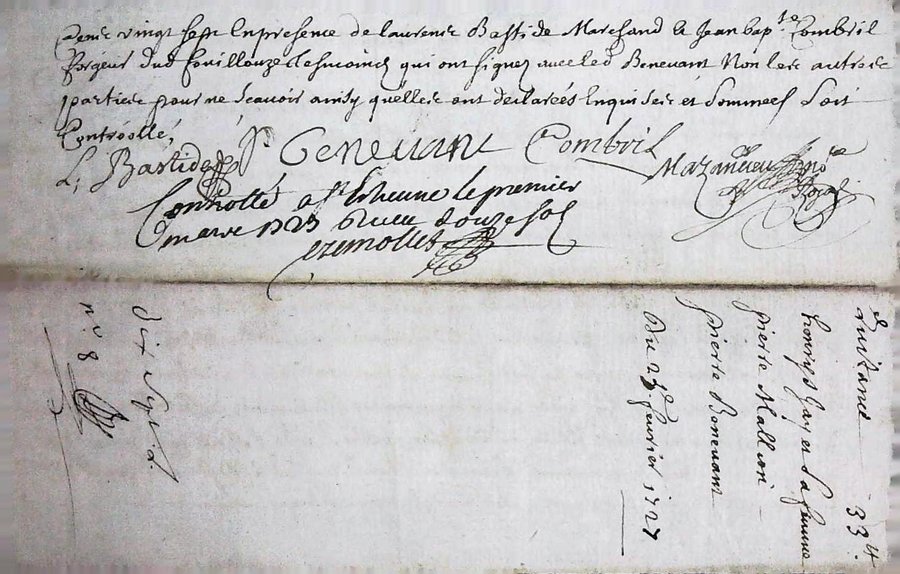 Cens vingt sept En presence de laurens Bastide Marchand et Jean bap.te Combril
forgeur du d fouillouze tesmoings qui ont signez avec led Benevant Non les autres
parties pour ne scavoir ainsy quelles ont declarées Enquises et sommees soit
Controollé,
L, Bastide
P Benevant
Combril
Mazancieu no.re Royal
Controllé a St Etienne le premier
mars 1727 Receu douze sols
Quitance 33.tt
honrys Gay et Sa femme
pierre Mallion
pierre Benevant
Du 27. fevrier 1727
n.o 8